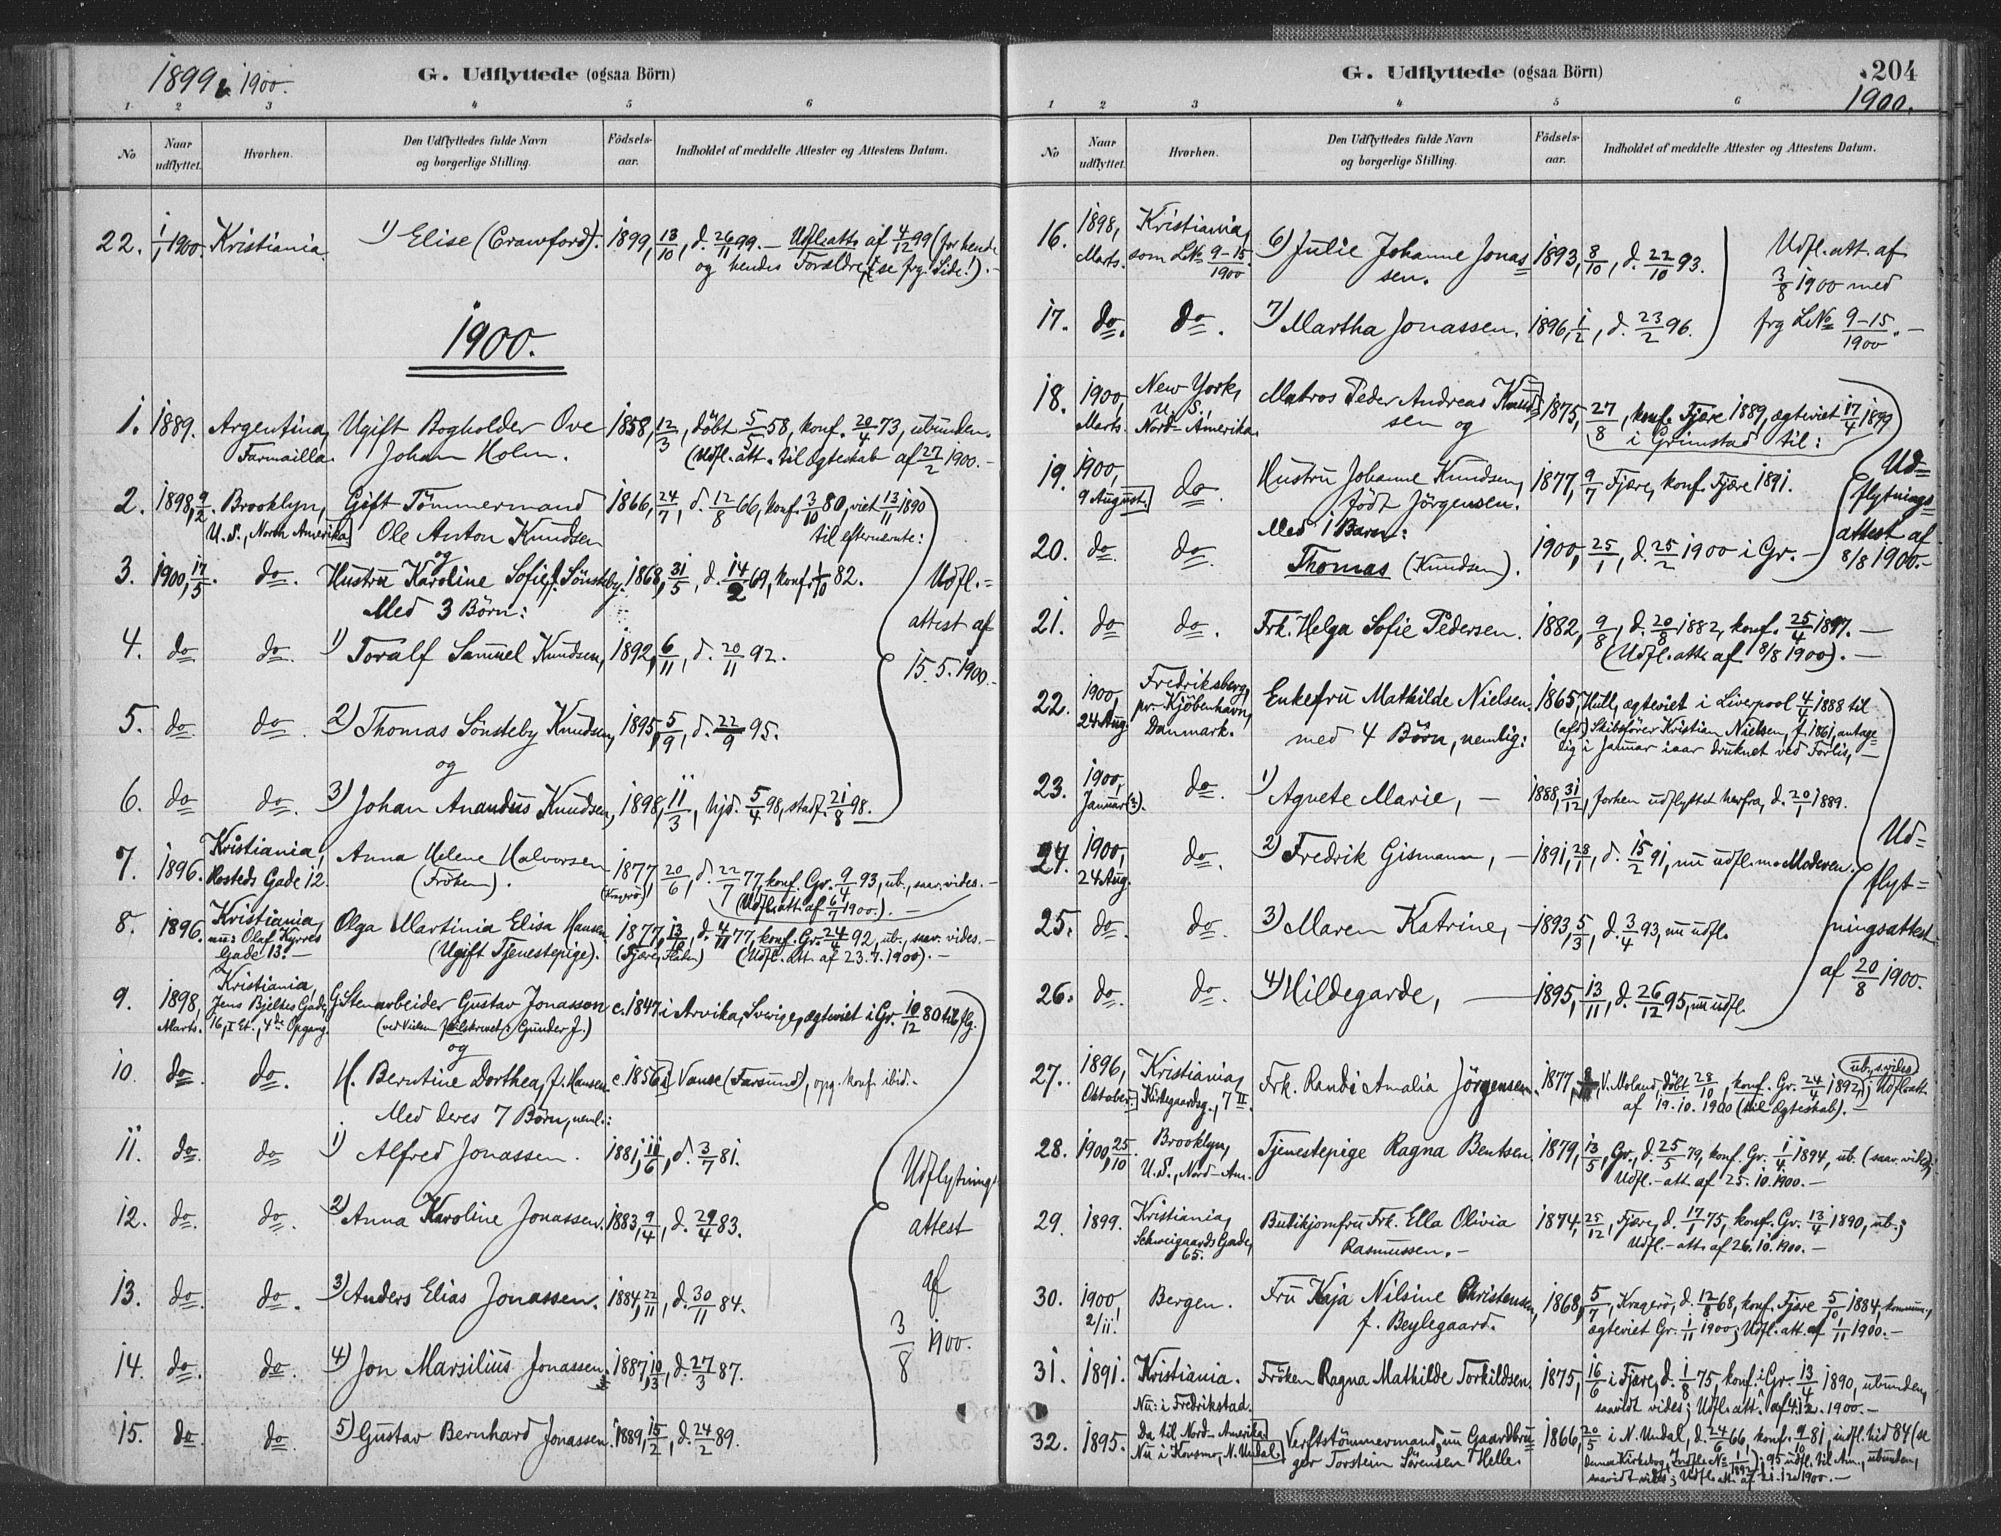 1899 & 1900.
G. Udflyttede (ogsaa Börn)
1 2 3 4 5 6
No
Naar udflyttet.
Hvorhen.
Den Udflyttedes fulde Navn og borgerlige Stilling.
Födselsaar.
Indholdet af meddelte Attester og Attestens Datum.
22. 1/1 1900. Kristiania 1) Elise (Crawford). 1899, 13/10, d. 26/11 99. — Udfl.atts af 4/12 99 (for hende
og hendes Forældre (se frg. Side!). —
1900.
1. 1889. Argentina, Ugift Bogholder Ove 1858, 12/3, döbt 5/5 58, konf. 20/4 73, ubunden.
Farmailla. Johan Holm. (Udfl. att. til Ægteskab af 27/2 1900. —
2. 1898, 9/2. Brooklyn, Gift Tömmermand 1866, 24/7, d. 12/8 66, konf. 3/10 80, viet 13/11 1890
U. S., North Amerika. Ole Anton Knudsen til efternevnte:
og
3. 1900, 17/5. do. Hustru Karoline Sofie f. Sönsteby. 1868, 31/5, d. 14/2 69, konf. 1/10 82. Udfl.=
Med 3 Börn: attest af
4. do do. 1) Toralf Samuel Knudsen, 1892, 6/11, d. 20/11 92. 15. 5. 1900. —
5. do do. 2) Thomas Sönsteby Knudsen, 1895, 5/9, d. 22/9 95.
og
6. do do. 3) Johan Anandus Knudsen, 1898, 11/3, hjd. 5/4 98, stadf. 21/8 98.
7. 1896. Kristiania, Anna Helene Halvorsen 1877, 20/6, d. 22/7 77, konf. Gr. 9/4 93, ub., saav. vides. —
Rosteds Gade 12. (Fröken). (Udfl. att. af 6/7 1900.). —
8. 1896. Kristiania, Olga Martinia Elisa Hansen 1877, 13/10, d. 4/11 77, konf. Gr. 24/4 92, ub., saav. vides. —
nu: Olaf Kyrres Gade 13. — (Ugift Tjenestepige). (Udfl. att. af 23. 7. 1900). —
9. 1898, Marts. Kristiania, Jens Bjelkes Gade, 16, I Et., 4de Opgang. G. Stenarbeider Gustav Jonasson c. 1847 i Arvika, Sverige, ægteviet i Gr. 10/12 80 til flg.
og
10. do. do. H. Berntine Dorthea, f. Hansen c. 1856 i Vanse (Farsund), opg. konf. ibid. —
Med deres 7 Börn, neml.:
11. do. do 1) Alfred Jonassen. 1881, 10/6, d. 3/7 81. Udflytnings
12. do. do. 2) Anna Karoline Jonassen. 1883, 9/4, d. 29/4 83. attest
13. do. do. 3) Anders Elias Jonassen. 1884, 22/11, d. 30/11 84. af
3/8 1900.
14. do. do. 4) Jon Marsilius Jonassen. 1887, 10/3, d. 27/3 87.
15. do. do. 5) Gustav Bernhard Jonassen. 1889, 15/2, d. 24/2 89.
G. Udflyttede (ogsaa Börn)
204
1900.
1 2 3 4 5 6
No
Naar udflyttet.
Hvorhen.
Den Udflyttedes fulde Navn og borgerlige Stilling.
Födselsaar.
Indholdet af meddelte Attester og Attestens Datum.
16. 1898, Marts. Kristiania, som L№ 9–15/1900 6) Julie Johanne Jonassen. 1893, 8/10, d. 22/10 93. Udfl. att. af
3/8 1900 med
17. do. do. 7) Martha Jonassen. 1896, 1/2, d. 23/2 96. frg L№ 9–15/1900. —
18. 1900, Marts. New York, U. S., Nord-Amerika. Matros Peder Andreas Knudsen og 1875, 27/8, konf. Fjære 1889, ægteviet 17/4 1899
i Grimstad til:
19. 1900, 9 August. do. Hustru Johanne Knudsen, födt Jörgensen. 1877, 9/7 Fjære, konf. Fjære 1891. Ud=
flytnings=
Med 1 Barn: attest af
20. do. do. Thomas (Knudsen). 1900, 25/1, d. 25/2 1900 i Gr. — 8/8 1900. —
21. do do. Frk. Helga Sofie Pedersen. 1882, 9/8, d. 20/8 1882, konf. 25/4 1897. —
(Udfl. att. af 8/8 1900). —
22. 1900, 24 Aug. Fredriksberg, pr. Kjöbenhavn, Danmark. Enkefru Mathilde Nielsen 1865, Hull, ægteviet i Liverpool 4/1 1888 til
med 4 Börn, nemlig: (afd.) Skibsförer Kristian Nielsen, f. 1861, antage=
lig i Januar iaar druknet ved Forlis, —
23. 1900 Januar (?). do. 1) Agnete Marie, — 1888, 31/12, forhen udflyttet herfra, d. 20/1 1889.
24. 1900, 24 Aug. do. 2) Fredrik Gismann, — 1891, 28/1, d. 15/2 91, nu udfl. m. Moderen. Ud=
flyt=
25. do. do. 3) Maren Katrine, — 1893, 5/3, d. 3/4 93, nu udfl. ningsattest
26. do. do. 4) Hildegarde, — 1895, 13/11, d. 26/12 95, nu udfl. af 20/8 1900.
27. 1896, Oktober. Kristiania, Kirkegaardsg., 7 II. Frk. Randi Amalia Jörgensen. 1877, V. Moland, döbt 28/10, konf. Gr. 24/4 1892, ub., s. vides; Udfl. att.
af 19. 10. 1900 (til Ægteskab). —
28. 1900, 25/10. Brooklyn, U. S., Nord-Am. Tjenestepige Ragna Bentsen. 1879, 13/5, Gr., d. 25/5 79, konf. Gr. 1/4 1894, ub. (saav. vides);
Udfl.-att. af 25. 10. 1900. —
29. 1899. Kristiania, Schweigaards Gade, 65. Butikjomfru Frk. Ella Olivia Rasmussen. — 1874, 25/12, Fjære, d. 17/1 75, konf. Gr. 13/4 1890, ub.;
Udfl.-att. af 26. 10. 1900. —
30. 1900, 2/11. Bergen. Fru Kaja Nilsine Christensen, f. Beylegaard. 1868, 5/7, Kragerö, d. 12/8 68, konf. Fjære 5/10 1884, kommun.,
ægteviet Gr. 1/11 1900; Udfl. att. af 1/11 1900. —
31. 1891. Kristiania. Nu: i Fredrikstad. Fröken Ragna Mathilde Torkildsen. 1875, 16/6 i Fjære, d. 1/8 75, konf. i Gr. 13/4 1890, ubunden,
saavidt vides; Udfl. att. af 4. 12. 1900. —
32. 1895. Da til Nord-Amerika. Nu i Konsmo, N. Undal. Verftstömmermand, nu Gaardbru=
ger Torstein Sörensen Helle. 1866, 20/5 i N. Undal, d. 24/6 66, konf. 9/10 81, indfl. hid 84 (se
denne Kirkebog, Indfl. № 1/1892); 95 udfl. til Am., ubunden,
saavidt vides; Udfl. att. af 21. 12. 1900. —